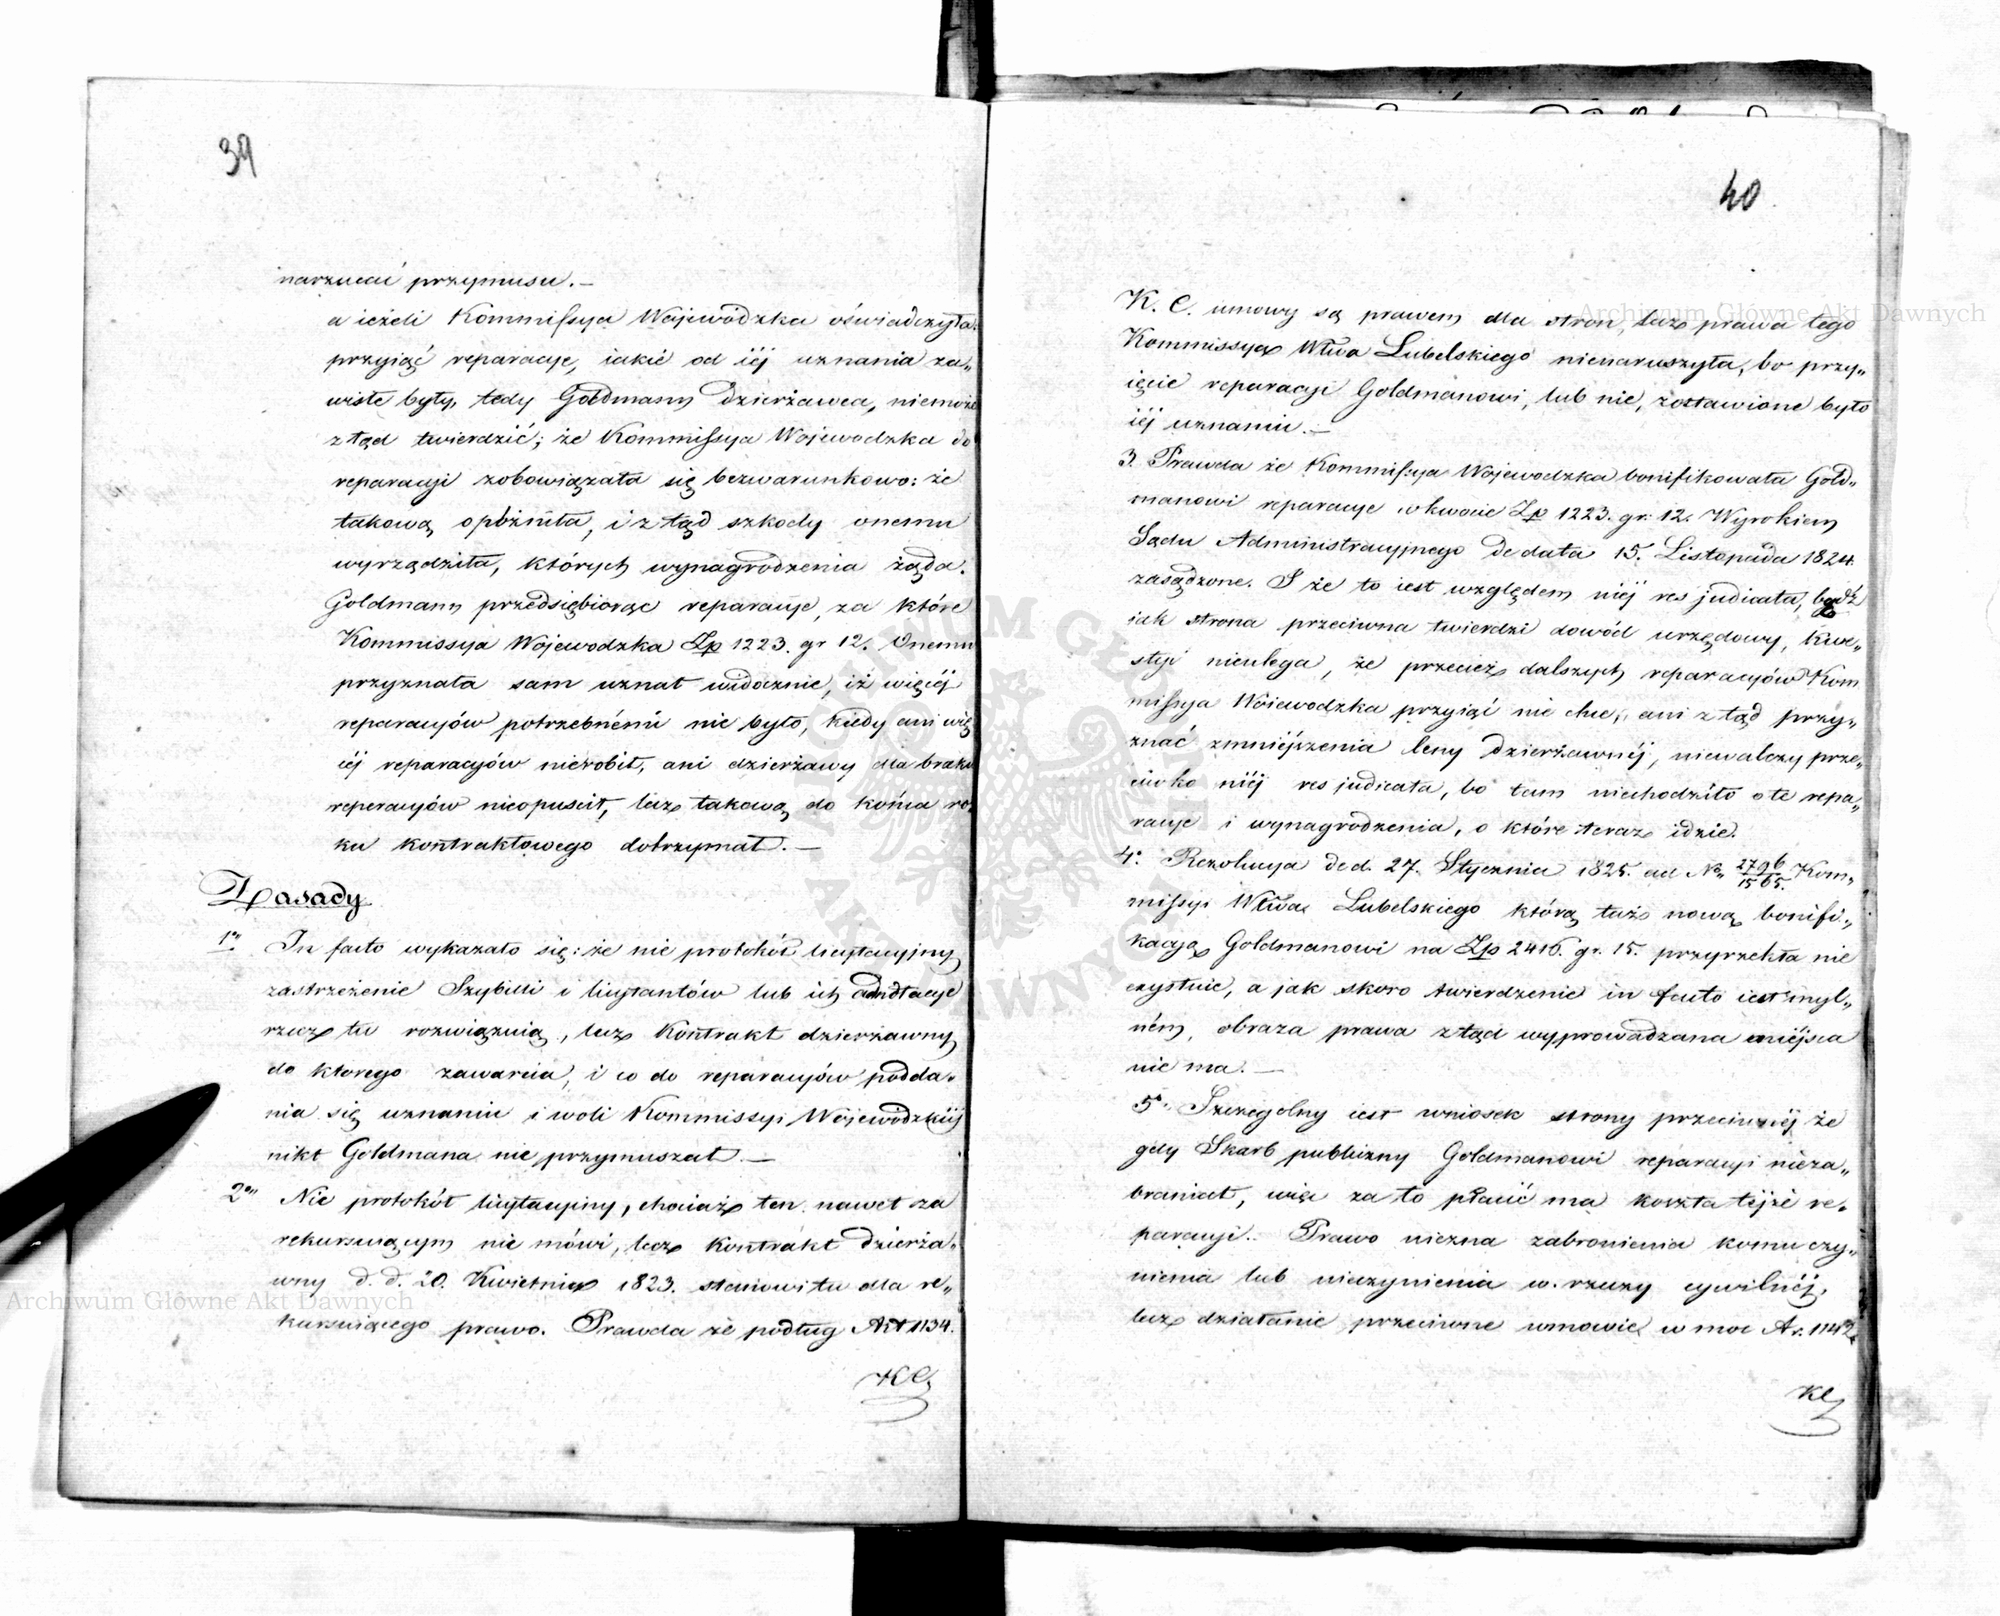 39
narzucać przymusu. —
a ieżeli Kommissya Wojewódzka oświadczyła
przyiąć reparacye, iakie od iéj uznania za„
wisłe były, tedy Goldmann Dzierżawca, niemoże
ztąd twierdzić; że Kommissya Wojewodzka do
reparacyi zobowiązała się bezwarunkowo: że
takową opóźniła, i ztąd szkody onemu
wyrządziła, których wynagrodzenia żąda.
Goldmann przedsiębiorąc reparacye, za które
Kommissya Wojewodzka Zp 1223. gr 12. Onemu
przyznała sam uznał widocznie, iż więcéj
reparacyów potrzebnémi nie było, kiedy ani wię
iéj reparacyów nierobił, ani dzierżawy dla braku
reperacyów nieopuscił, lecz takową do końca ro„
ku kontraktowego dotrzymał. —
Zasady
1o In facto wykazało się: że nie protokół licytacyjny
zastrzeżenie Szybilli i licytantów lub ich adnotacye
rzecz tu rozwiązuią, lecz Kontrakt dzierżawny
do ktorego zawarcia, i co do reparacyów podda„
nia się uznaniu i woli Kommissyi Wojewódzkiéj
nikt Goldmana nie przymuszał. —
2o Nie protokół licytacyiny, chociaż ten nawet za
rekursuiącym nie mówi, lecz kontrakt Dzierża„
wny d. d. 20. Kwietnia 1823. stanowi tu dla re„
kursuiącego prawo. Prawda że podług Art 1134.
KC
40
K. C. umowy są prawem dla stron, lecz prawa tego
Kommissya Wtwa Lubelskiego nienaruszyła, bo przy„
ięcie reparacyi Goldmanowi, lub nie, zostawione było
iéj uznaniu. —
3. Prawda że Kommissya Wojewodzka bonifikowała Gold„
manowi reparacye w kwocie Zp 1223. gr: 12. Wyrokiem
Sądu Administracyjnego de data 15. Listopada 1824
zasądzone. I że to iest względem niéj res judicata, bądź
iak strona przeciwna twierdzi dowód urzędowy, kwe„
styi nieulega, że przecież dalszych reparacyów Kom
missya Woiewodzka przyiąć nie chce, ani ztąd przy„
znać zmniéjszenia Ceny Dzierżawnéj, niewalczy prze„
ciwko niéj res judicata, bo tam niechodziło o te repa„
racye i wynagrodzenia, o które teraz idzie.
4o Rezolucya de d. 27. Stycznia 1825. ad No 2796/1565. Kom„
missyi Wtwa Lubelskiego którą taż nową bonifi„
kacyą Goldmanowi na Zp 2416. gr. 15. przyrzekła nie
czystnie, a jak skoro twierdzenie in facto iest myl„
ném, obraza prawa ztąd wyprowadzana miéjsca
nie ma. —
5o Szczegolny iest wniosek strony przeciwnéj że
gdy Skarb publiczny Goldmanowi reparacyi nieza„
braniał, więc za to płacić ma koszta téjże re„
paracyi. Prawo niezna zabronienia komu czy„
nienia lub nieczynienia w rzeczy cywilnéj,
lecz działanie przeciwne umowie w moc Ar. 1142
KC
Archiwum Główne Akt Dawnych
Archiwum Główne Akt Dawnych
ARCHIWUM GŁÓWNE AKT DAWNYCH